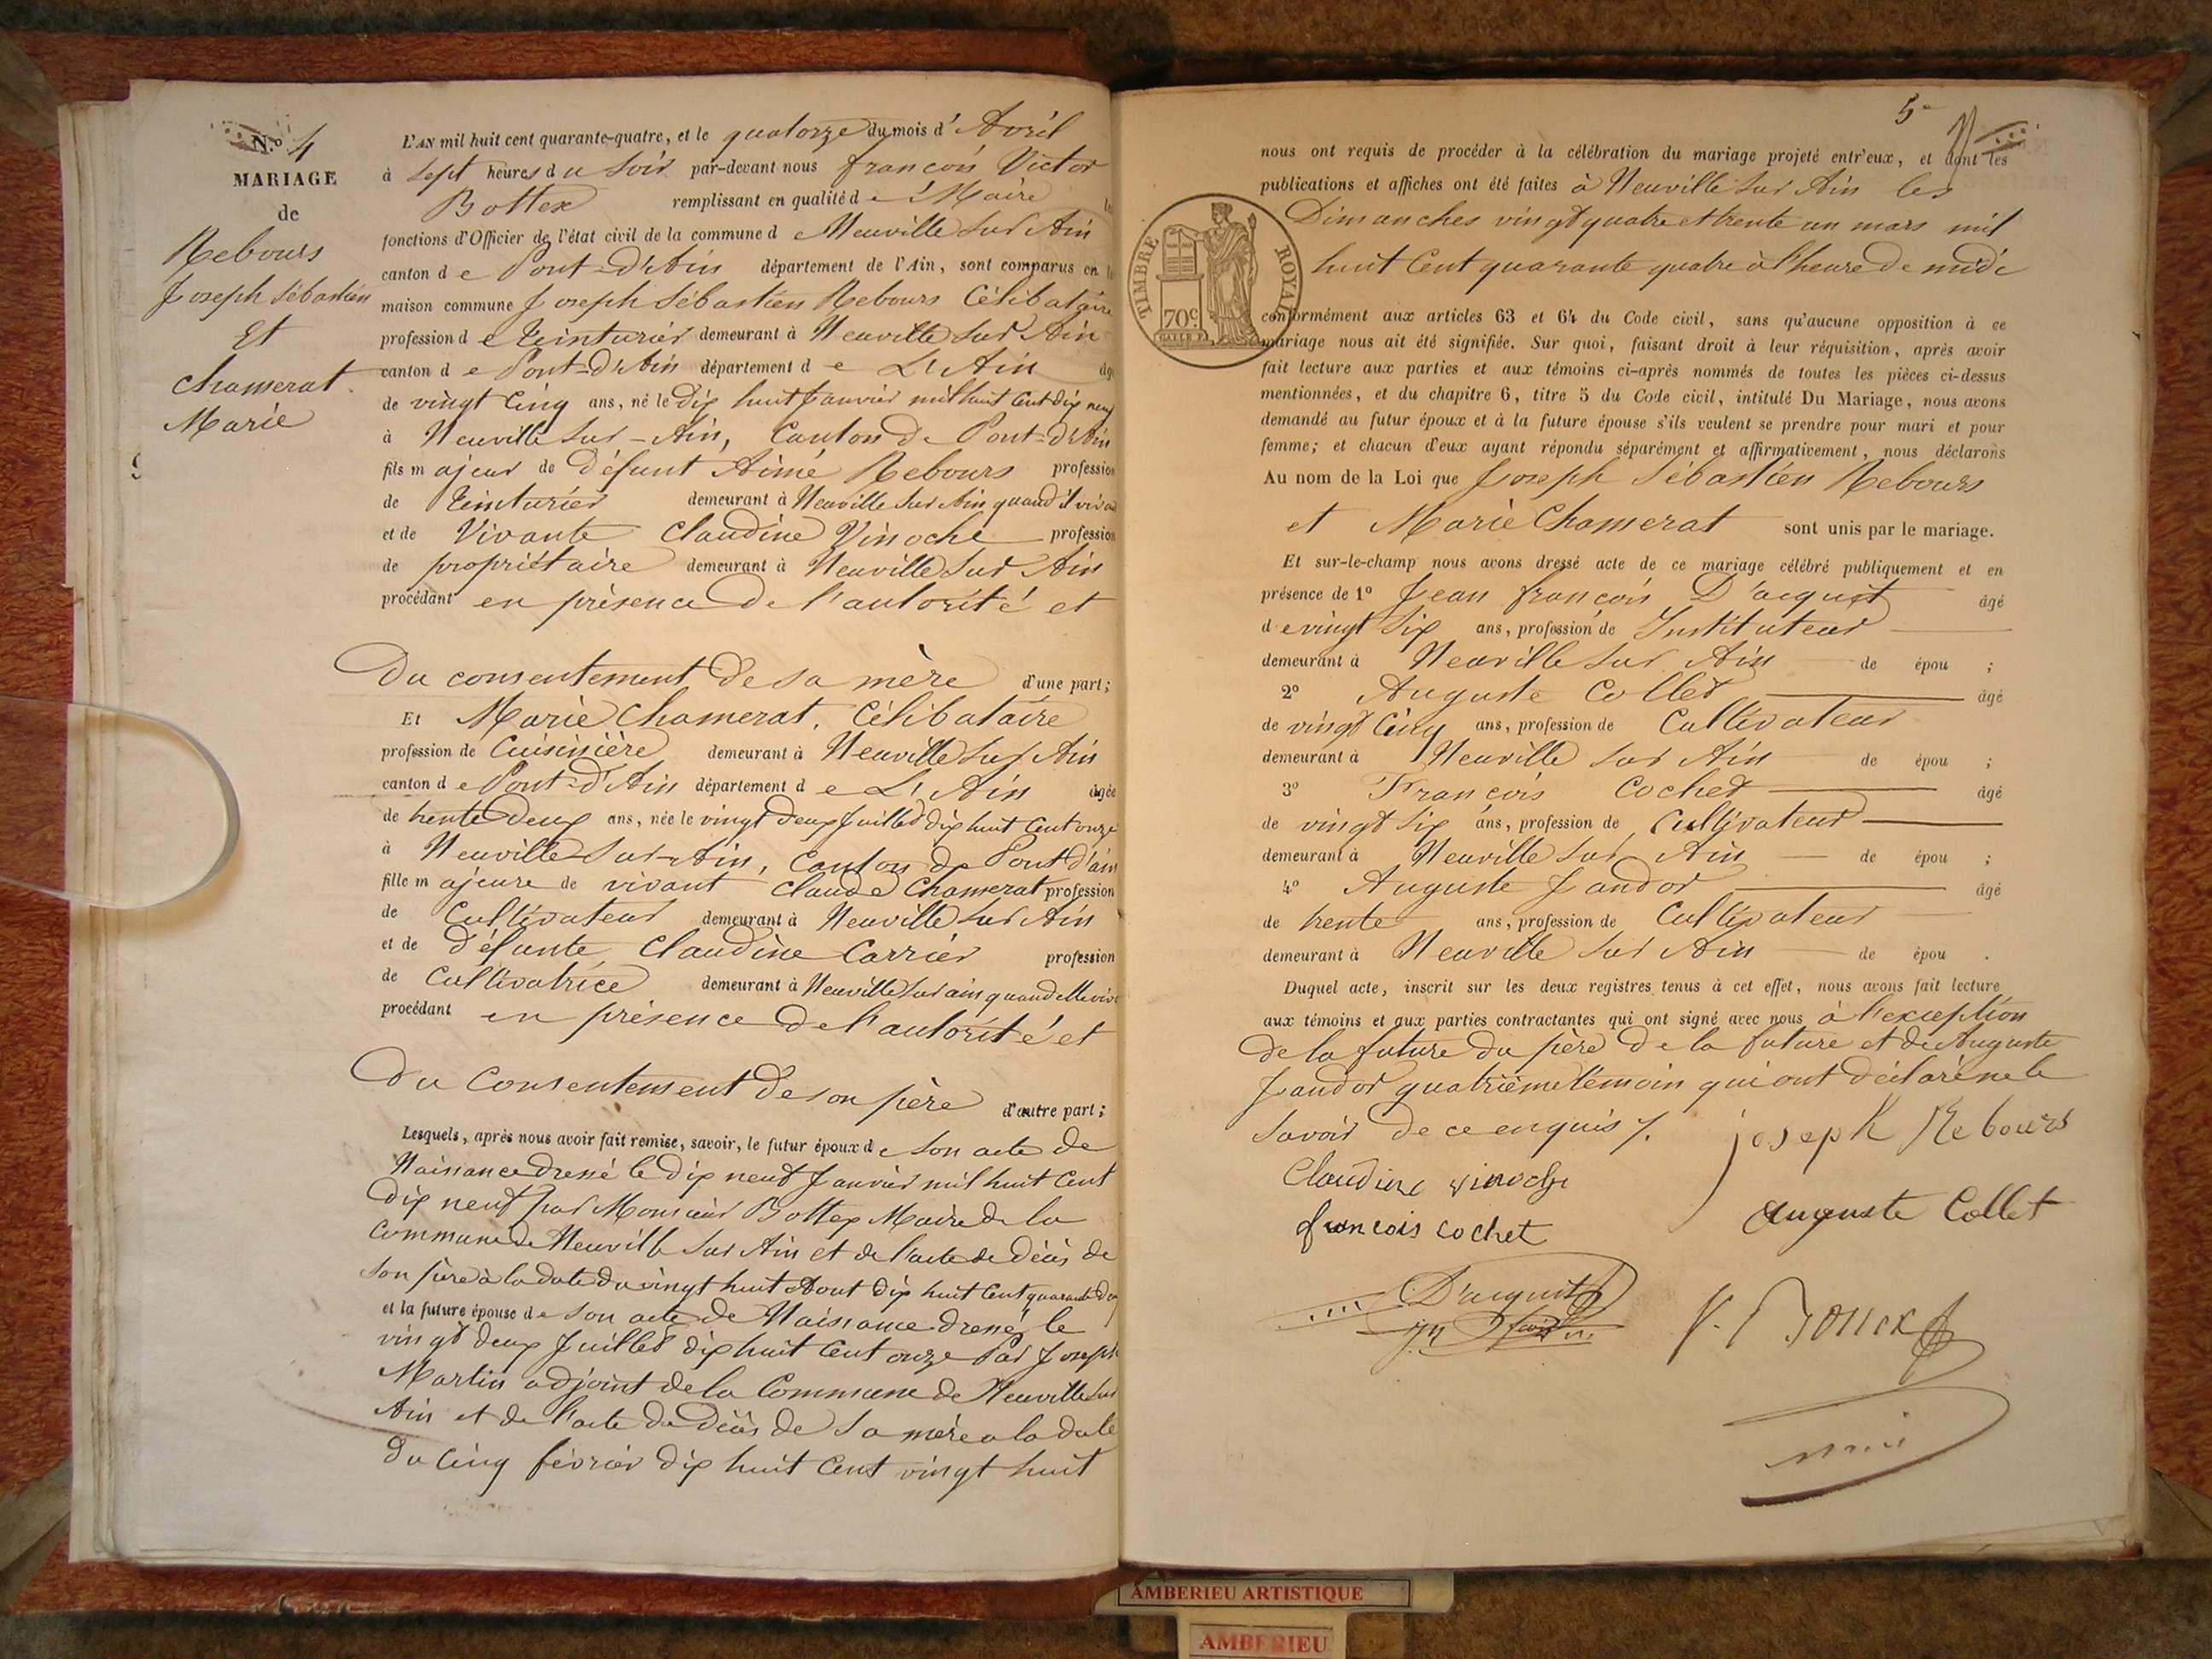 N.º 4
MARIAGE
de
Rebours
Joseph Sébastien
Et
Chamerat
Marie
L'AN mil huit cent quarante-quatre, et le quatorze du mois d'Avril
à sept heures du soir par-devant nous françois Victor
Bottex remplissant en qualité de Maire
fonctions d'Officier de l'état civil de la commune de Neuville sur Ain
canton de Pont-d'Ain département de l'Ain, sont comparus en la
maison commune Joseph Sébastien Rebours Célibataire
profession de teinturier demeurant à Neuville sur Ain
canton de Pont-d'Ain département de L'Ain âgé
de vingt cinq ans, né le dix huit Janvier mil huit cent dix neuf
à Neuville sur-Ain, Canton de Pont-d'Ain
fils majeur de défunt Aimé Rebours profession
de teinturier demeurant à Neuville sur Ain quand il vivait
et de Vivante Claudine Vinoche profession
de propriétaire demeurant à Neuville sur Ain
procédant en présence de l'autorité et
Du consentement de sa mère d'une part;
Et Marie Chamerat, Célibataire
profession de Cuisinière demeurant à Neuville sur Ain
canton de Pont-d'Ain département de L'Ain âgée
de trente deux ans, née le vingt deux Juillet dix huit cent onze
à Neuville-sur-Ain, Canton de Pont d'ain
fille majeure de vivant Claude Chamerat profession
de Cultivateur demeurant à Neuville sur Ain
et de défunte Claudine Carrier profession
de Cultivatrice demeurant à Neuville sur ain quand elle vivait
procédant en présence de l'autorité et
Du Consentement de son père d'autre part;
Lesquels, après nous avoir fait remise, savoir, le futur époux de son acte de
Naissance dressé le dix neuf Janvier mil huit Cent
dix neuf par Monsieur Bottex Maire de la
Commune de Neuville sur Ain et de l'acte de décès de
son père à la date du vingt huit Aout dix huit Cent quarante deux
et la future épouse de son acte de Naissance dressé le
vingt deux Juillet dix huit Cent onze Par Joseph
Martin adjoint de la Commune de Neuville sur
Ain et de l'acte de Décès de sa mère a la date
du Cinq février dix huit Cent vingt huit
5
nous ont requis de procéder à la célébration du mariage projeté entr'eux, et dont les
publications et affiches ont été faites à Neuville sur Ain les
Dimanches vingt quatre et trente un mars mil
huit Cent quarante quatre à l'heure de midi
TIMBRE ROYAL
70c
conformément aux articles 63 et 64 du Code civil, sans qu'aucune opposition à ce
mariage nous ait été signifiée. Sur quoi, faisant droit à leur réquisition, après avoir
fait lecture aux parties et aux témoins ci-après nommés de toutes les pièces ci-dessus
mentionnées, et du chapitre 6, titre 5 du Code civil, intitulé Du Mariage, nous avons
demandé au futur époux et à la future épouse s'ils veulent se prendre pour mari et pour
femme; et chacun d'eux ayant répondu séparément et affirmativement, nous déclarons
Au nom de la Loi que Joseph Sébastien Rebours
et Marie Chamerat sont unis par le mariage.
Et sur-le-champ nous avons dressé acte de ce mariage célébré publiquement et en
présence de 1º Jean françois D'acquit âgé
de vingt six ans, profession de Instituteur
demeurant à Neuville sur Ain de épou ;
2º Auguste Collet âgé
de vingt Cinq ans, profession de Cultivateur
demeurant à Neuville sur Ain de épou ;
3º François Cochet âgé
de vingt six ans, profession de Cultivateur
demeurant à Neuville sur Ain de épou ;
4º Auguste Jandot âgé
de trente ans, profession de Cultivateur
demeurant à Neuville sur Ain de épou .
Duquel acte, inscrit sur les deux registres tenus à cet effet, nous avons fait lecture
aux témoins et aux parties contractantes qui ont signé avec nous à l'exception
de la future du père de la future et de Auguste
Jandot quatrième témoin qui ont déclaré ne le
savoir de ce enquis
joseph Rebours
Claudine vinoche
auguste Collet
francois cochet
D'acquit
AMBERIEU ARTISTIQUE
AMBERIEU